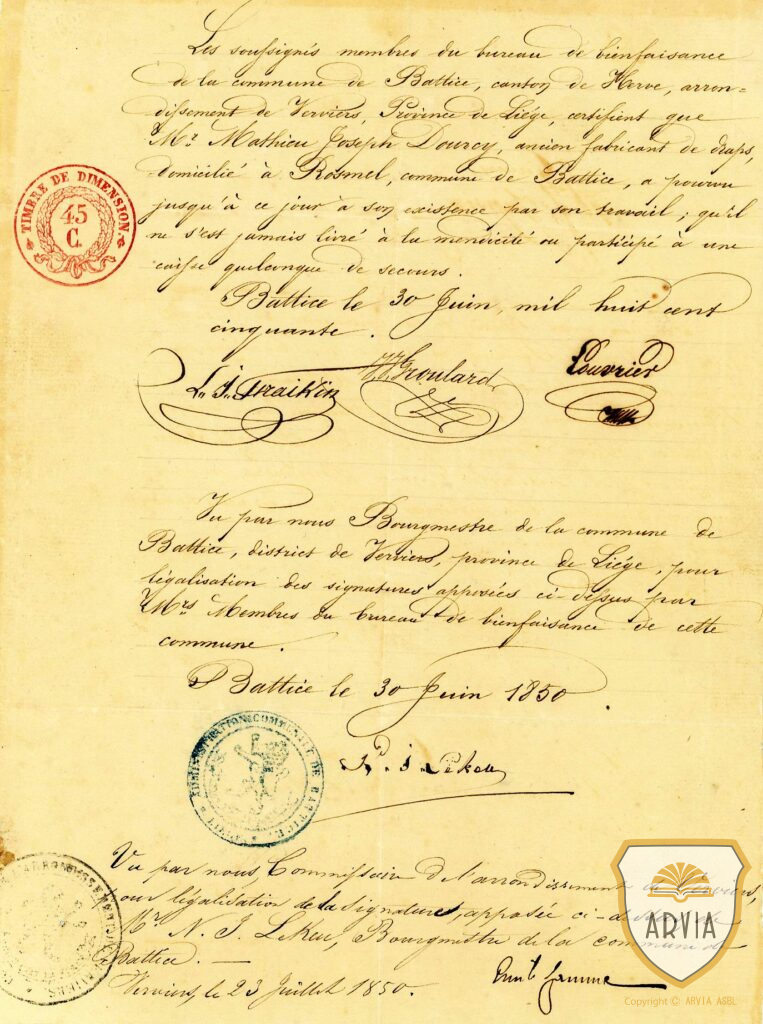 Les soussignés membres du bureau de bienfaisance
de la commune de Battice, canton de Herve, arron-
dissement de Verviers, Province de Liége, certifient que
Mr Mathieu Joseph Dourcy, ancien fabricant de draps,
domicilié à Rosmel, commune de Battice, a pourvu
jusqu'à ce jour à son existence par son travail ; qu'il
ne s'est jamais livré à la mendicité ou participé à une
caisse quelconque de secours.
Battice le 30 Juin, mil huit cent
cinquante.
TIMBRE DE DIMENSION.
45
C.
L. J. Traikin
Groulard
Louvrier
Vu par nous Bourgmestre de la commune de
Battice, district de Verviers, province de Liége, pour
légalisation des signatures apposées ci-dessus par
Mrs Membres du bureau de bienfaisance de cette
commune.
Battice le 30 Juin 1850.
ADMINISTRATION COMMUNALE DE BATTICE
J. Lekeu
Vu par nous, Commissaire de l'arrondissement de Verviers,
pour légalisation de la signature, apposée ci-dessus de
Mr N. J. Lekeu, Bourgmestre de la commune de
Battice. —
Verviers, le 23 Juillet 1850.
ARVIA
Copyright © ARVIA ASBL